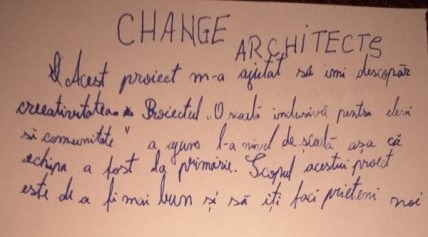 CHANGE
ARCHITECTS
Acest proiect m-a ajutat să îmi descopăr
creeativitatea. Proiectul „O școală inclusivă pentru elevi
si comunitate" a ajuns l-a nivel de școală așa că
echipa a fost la primărie. Scopul acestui proiect
este de a fi mai bun și să iți faci prieteni noi